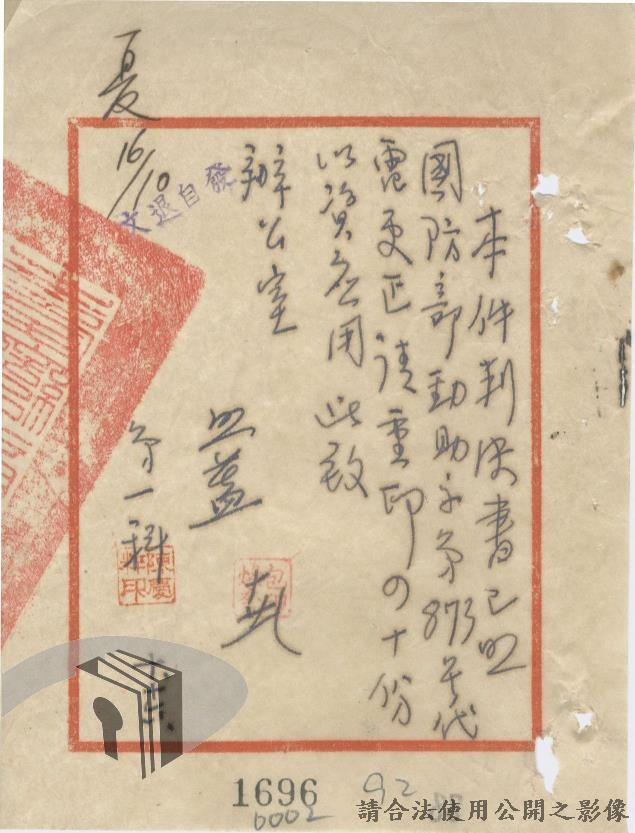 本件判決書已照
國防部勁助字第873號代
電更正請重印四十份
以資應用此致
辦公室
照蓋
第一科
陳慶
印
夏
16/10
發自退文
1696
0002
92
請合法使用公開之影像